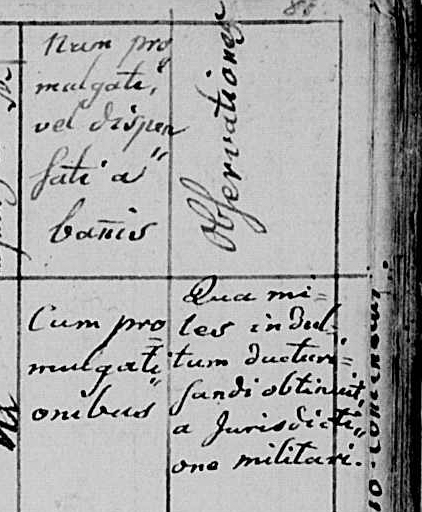 Num pro
mulgati,
vel dispen
sati a
bañis
Observationes
Cum pro
mulgati
onibus
Qua mi=
les indul,
tum ducturi=
sandi obtinuit
a Jurisdicti
one militari.